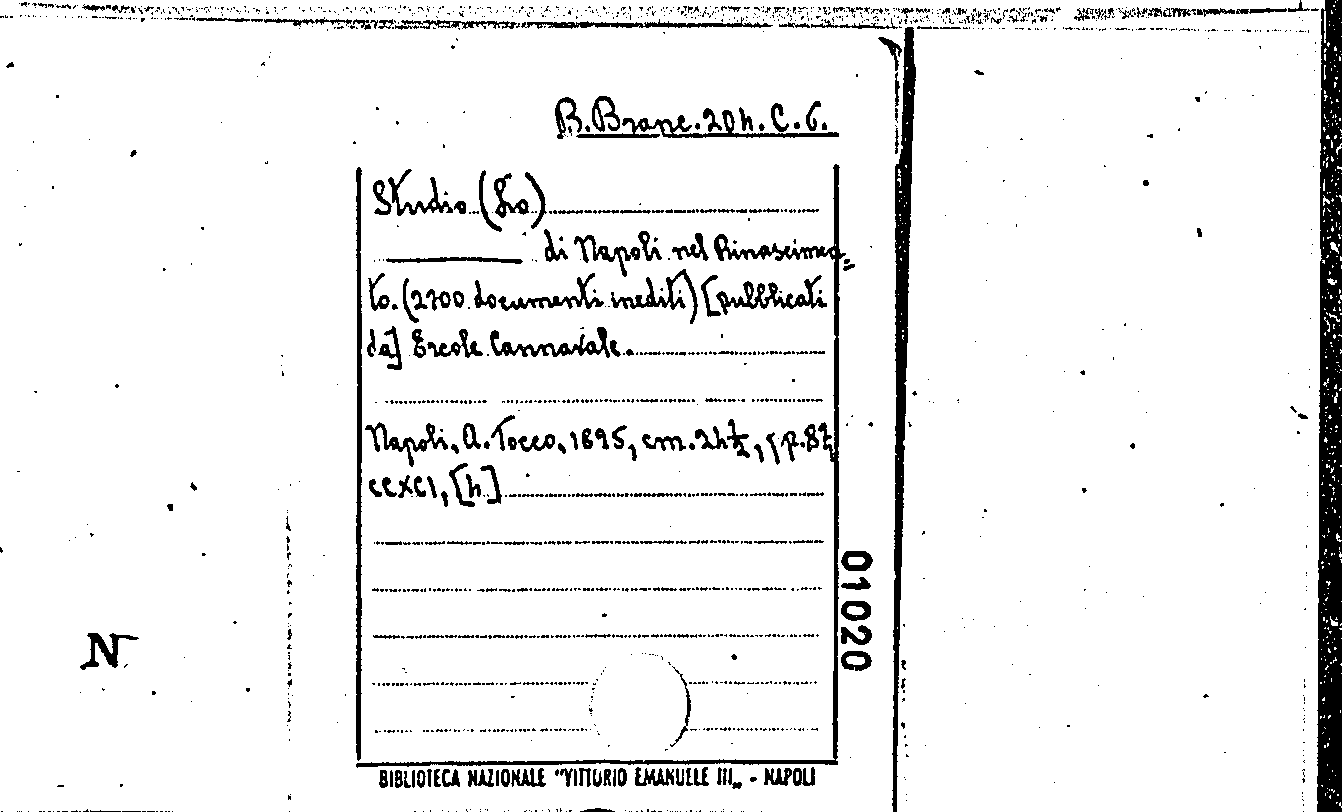 B. Branc. 20h. C. 6.
Studio (Lo)
di Napoli nel Rinascimen=
to. (2700 documenti inediti) [pubblicati
da] Ercole Cannavale.
Napoli, A. Tocco, 1895, cm. 24½, p. 82,
CCXCI, [h]
01020
N
BIBLIOTECA NAZIONALE "VITTORIO EMANUELE III„ - NAPOLI